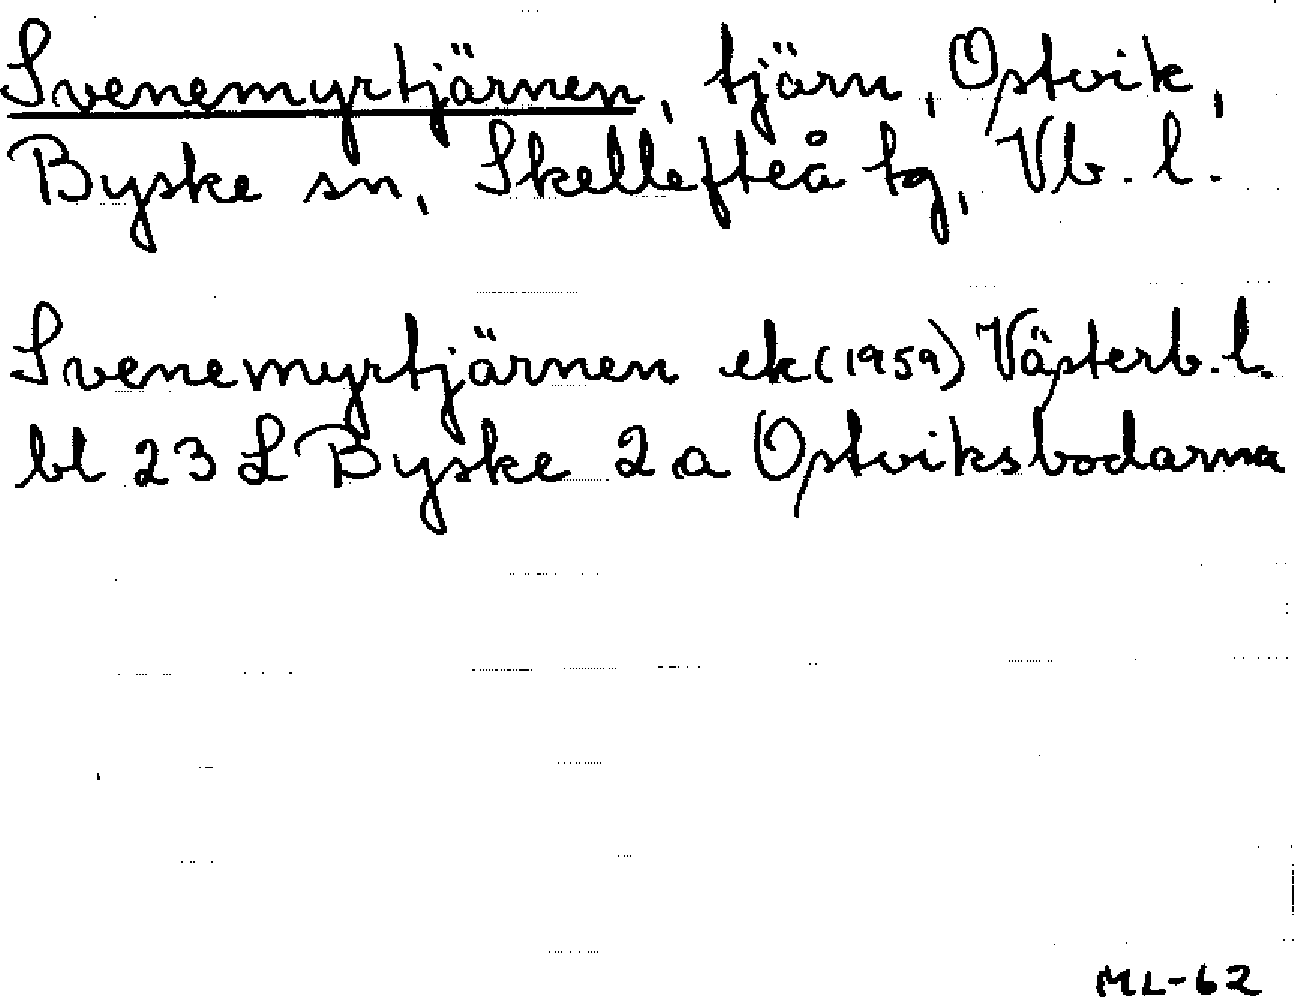 Svenemyrtjärnen, tjärn, Ostvik,
Byske sn, Skellefteå tg, Vb. l.
Svenemyrtjärnen ek (1959) Västerb. l.
bl 23 L Byske 2 a Ostviksbodarna
ML-62